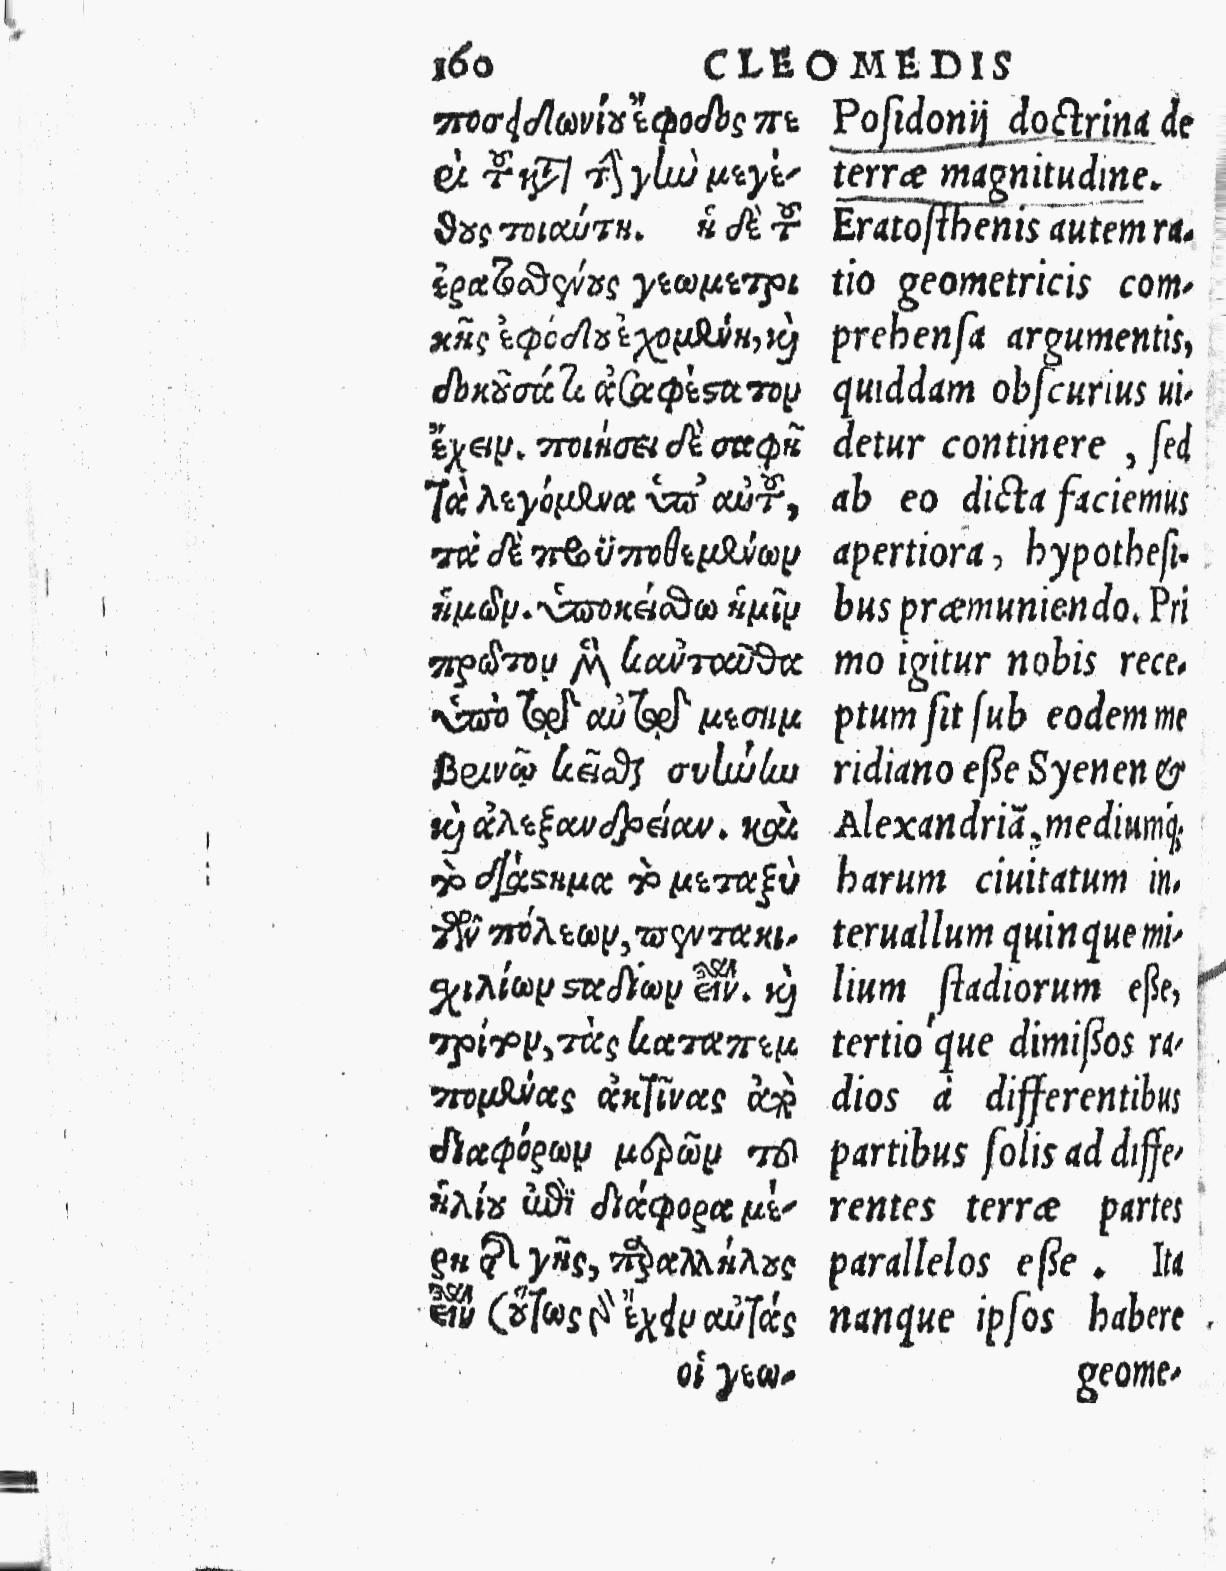 160 CLEOMEDIS
ποσειδωνίου ἔφοδος πε
ρὶ τοῦ κατὰ τὴν γῆν μεγέ-
θους τοιαύτη. ἡ δὲ τοῦ
ἐρατοσθένους γεωμετρι
κῆς ἐφόδου ἐχομένη, καὶ
δοκοῦσά τι ἀσαφέστατον
ἔχειν. ποιήσει δὲ σαφῆ
τὰ λεγόμενα ὑπ' αὐτοῦ,
τὰ δὲ προϋποθεμένων
ἡμῶν. ὑποκείσθω ἡμῖν
πρῶτον μὲν κἀνταῦθα
ὑπὸ τῷ αὐτῷ μεσημ
βρινῷ κεῖσθαι συήνην
καὶ ἀλεξανδρείαν. καὶ
τὸ διάστημα τὸ μεταξὺ
τῶν πόλεων, πεντακι-
σχιλίων σταδίων εἶναι. καὶ
τρίτον, τὰς καταπεμ
πομένας ἀκτῖνας ἀπὸ
διαφόρων μερῶν τοῦ
ἡλίου ἐπὶ διάφορα μέ-
ρη τῆς γῆς, παραλλήλους
εἶναι οὕτως γὰρ ἔχειν αὐτάς
οἱ γεω-
Poſidonij doctrina de
terræ magnitudine.
Eratoſthenis autem ra-
tio geometricis com-
prehenſa argumentis,
quiddam obſcurius ui-
detur continere, ſed
ab eo dicta faciemus
apertiora, hypotheſi-
bus præmuniendo. Pri
mo igitur nobis rece-
ptum ſit ſub eodem me
ridiano eſſe Syenen &
Alexandriã, mediumq́;
harum ciuitatum in-
teruallum quinque mi-
lium ſtadiorum eſſe,
tertio'que dimiſſos ra-
dios à differentibus
partibus ſolis ad diffe-
rentes terræ partes
parallelos eſſe. Ita
nanque ipſos habere
geome-